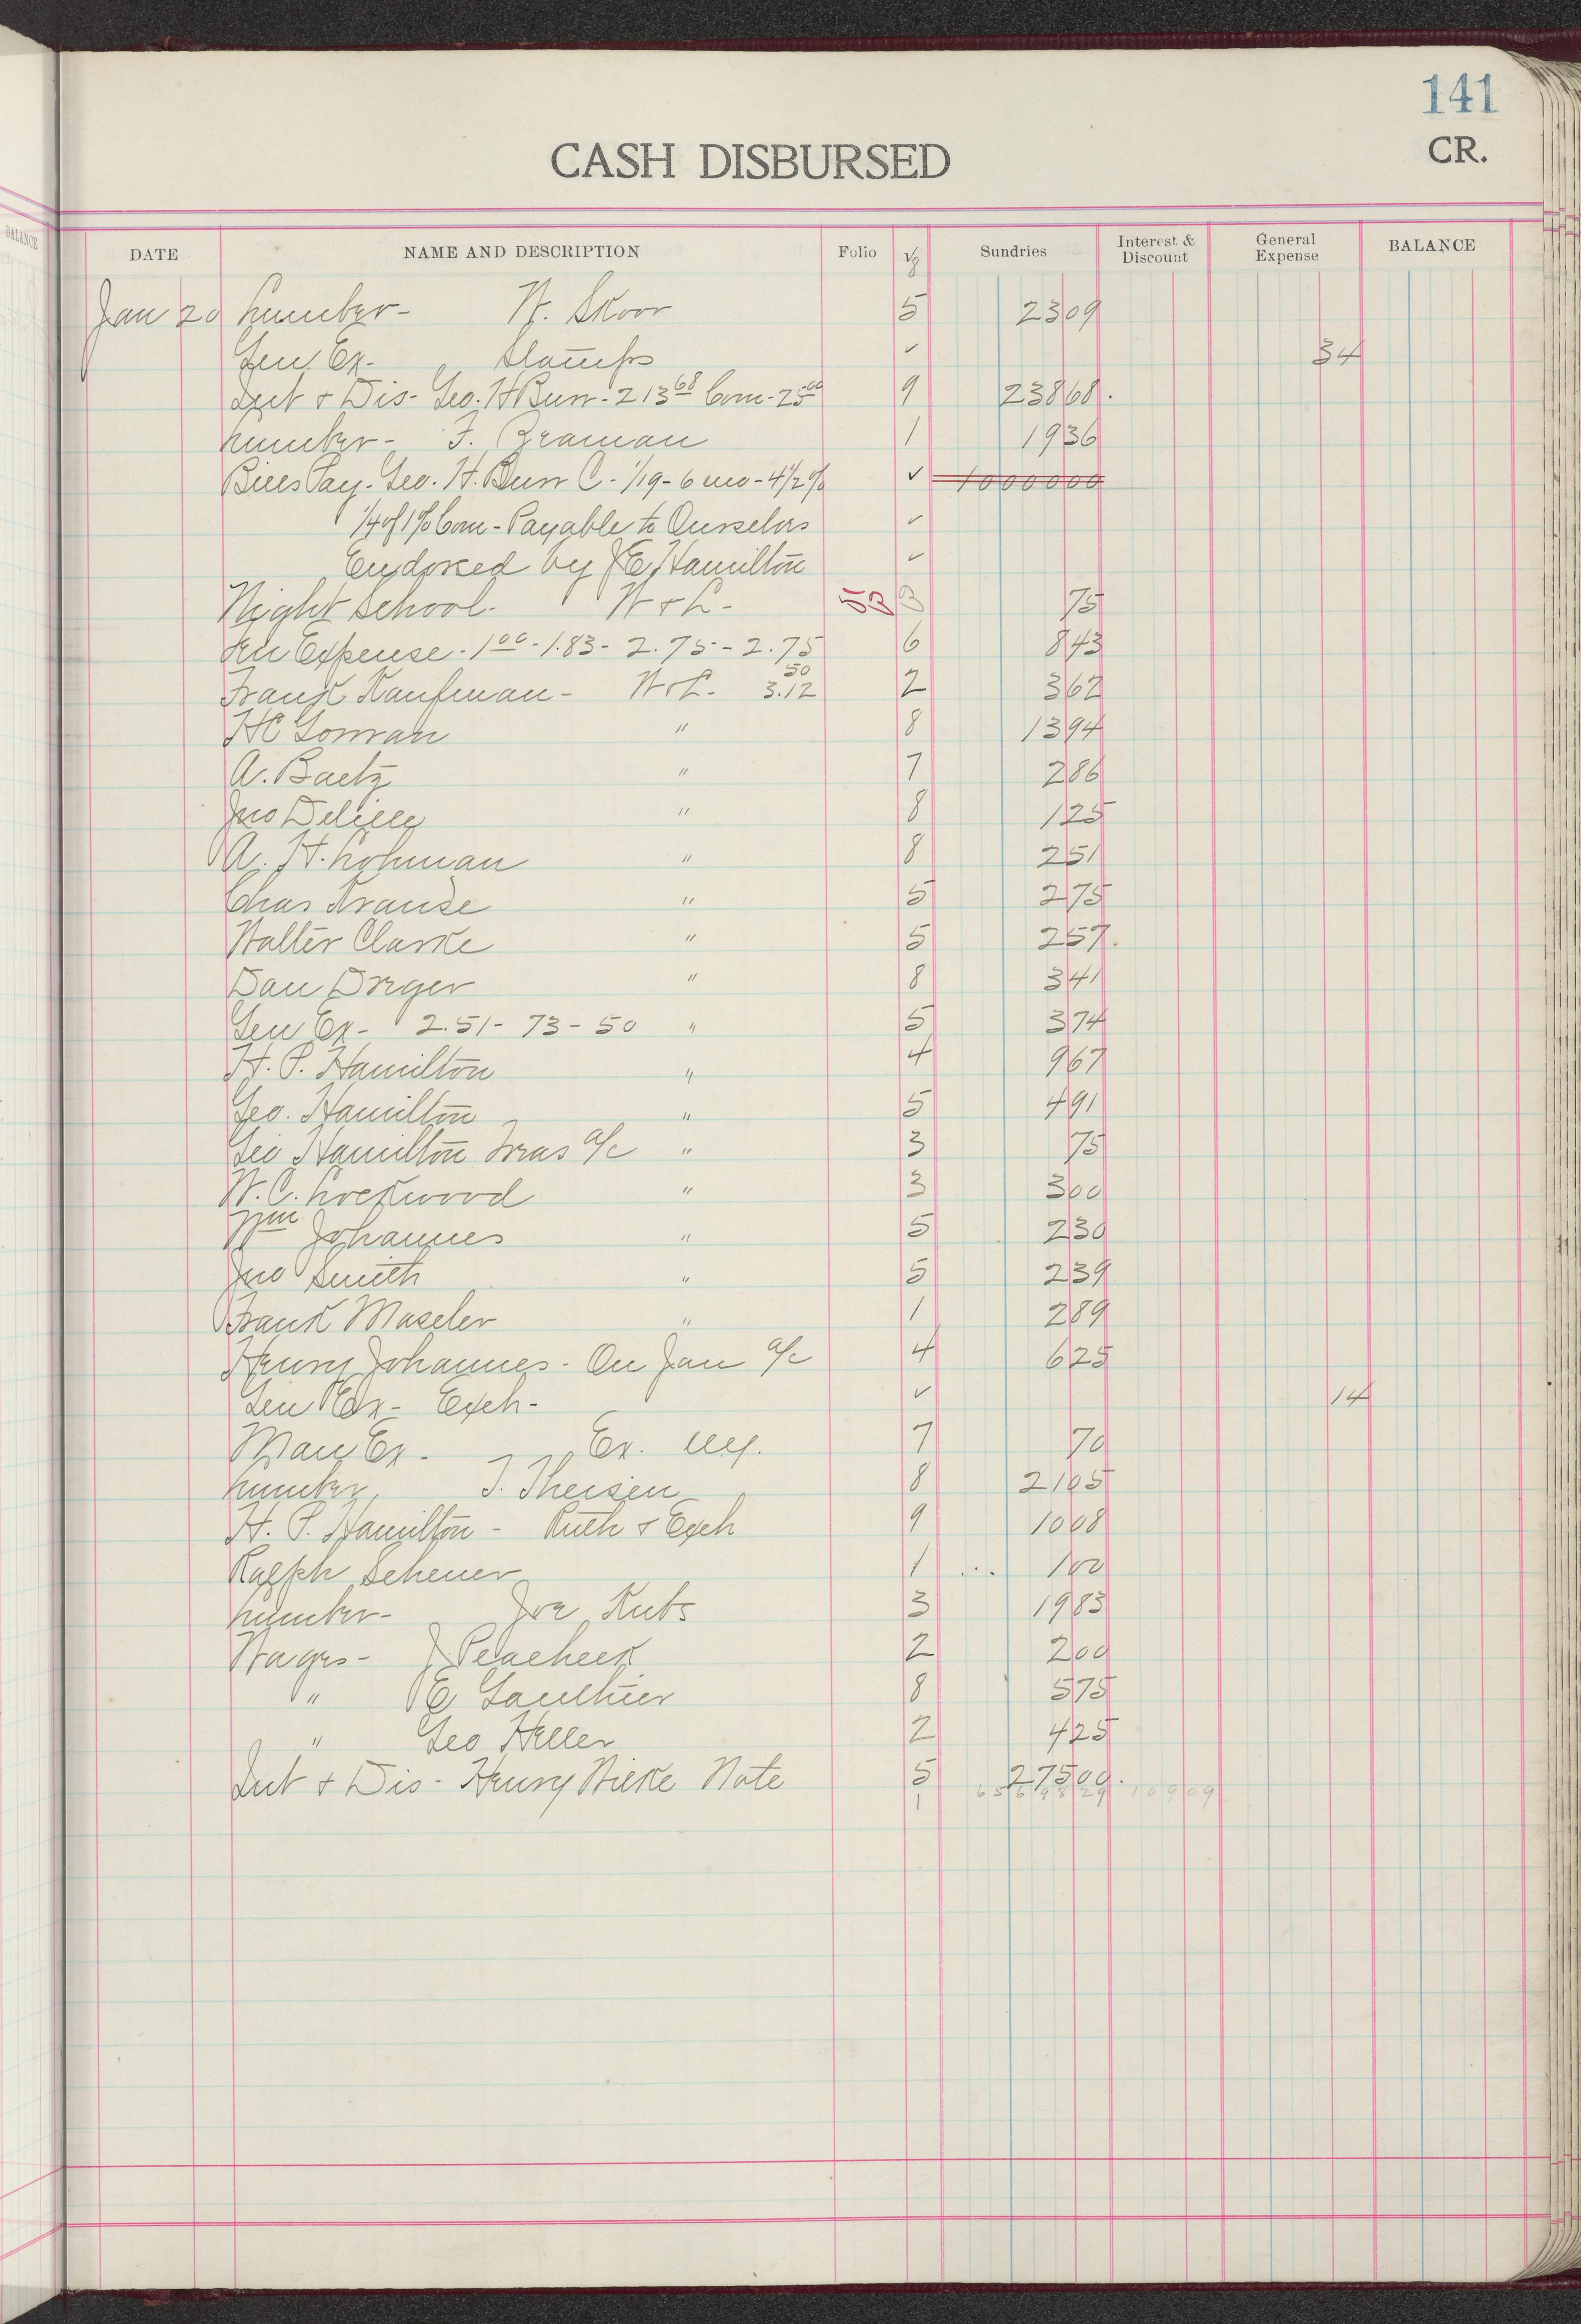 141
CASH DISBURSED
CR.
DATE NAME AND DESCRIPTION Folio √ Sundries Interest & Discount General Expense BALANCE
8
Jan 20 Lumber - W. Skoor 5 23 09
Gen Ex - Stamps ✓ 34
Int & Dis - Geo. H Burr - 213 68 Com - 25 00 9 238 68.
Lumber - F. Beaman 1 19 36
Bills Pay - Geo. H. Burr C - 1/19 - 6 mo - 4 1/2 % ✓ 10000 00
1/4 of 1% Com - Payable to Ourselves ✓
Endorsed by J E Hamilton ✓
Night School - W & L - 53 3 75
Gen Expense - 1 00 - 1.83 - 2.75 - 2.75 6 8 43
Frank Kaufman - W & L - 50 3.12 2 3 62
HC Gonvan " 8 13 94
A. Baetz " 7 2 86
Jno Delille " 8 1 25
A. H. Lohman " 8 2 51
Chas Krause " 5 2 75
Walter Clarke " 5 2 57.
Dan Dreger " 8 3 41
Gen Ex - 2.51 - 73 - 50 " 5 3 74
H. P. Hamilton " 4 9 67
Geo. Hamilton " 5 4 91
Geo Hamilton Treas a/c " 3 75
W. C. Lockwood " 3 3 00
Wm Johannes " 5 2 30
Jno Smith " 5 2 39
Frank Maseler " 1 2 89
Henry Johannes - On Jan a/c 4 6 25
Gen Ex - Exch - ✓ 14
Man Ex - Ex. 7 70
Lumber, T. Theisen 8 21 05
H. P. Hamilton - Ruth & Exch 9 10 08
Ralph Scheuer 1 1 00
Lumber - Joe Kubs 3 19 83
Wages - J Peacheek 2 2 00
" E Gaulthier 8 5 75
" Geo Heller 2 4 25
Int & Dis - Henry Wilke Note 5 275 00.
1 65698 29 109 09